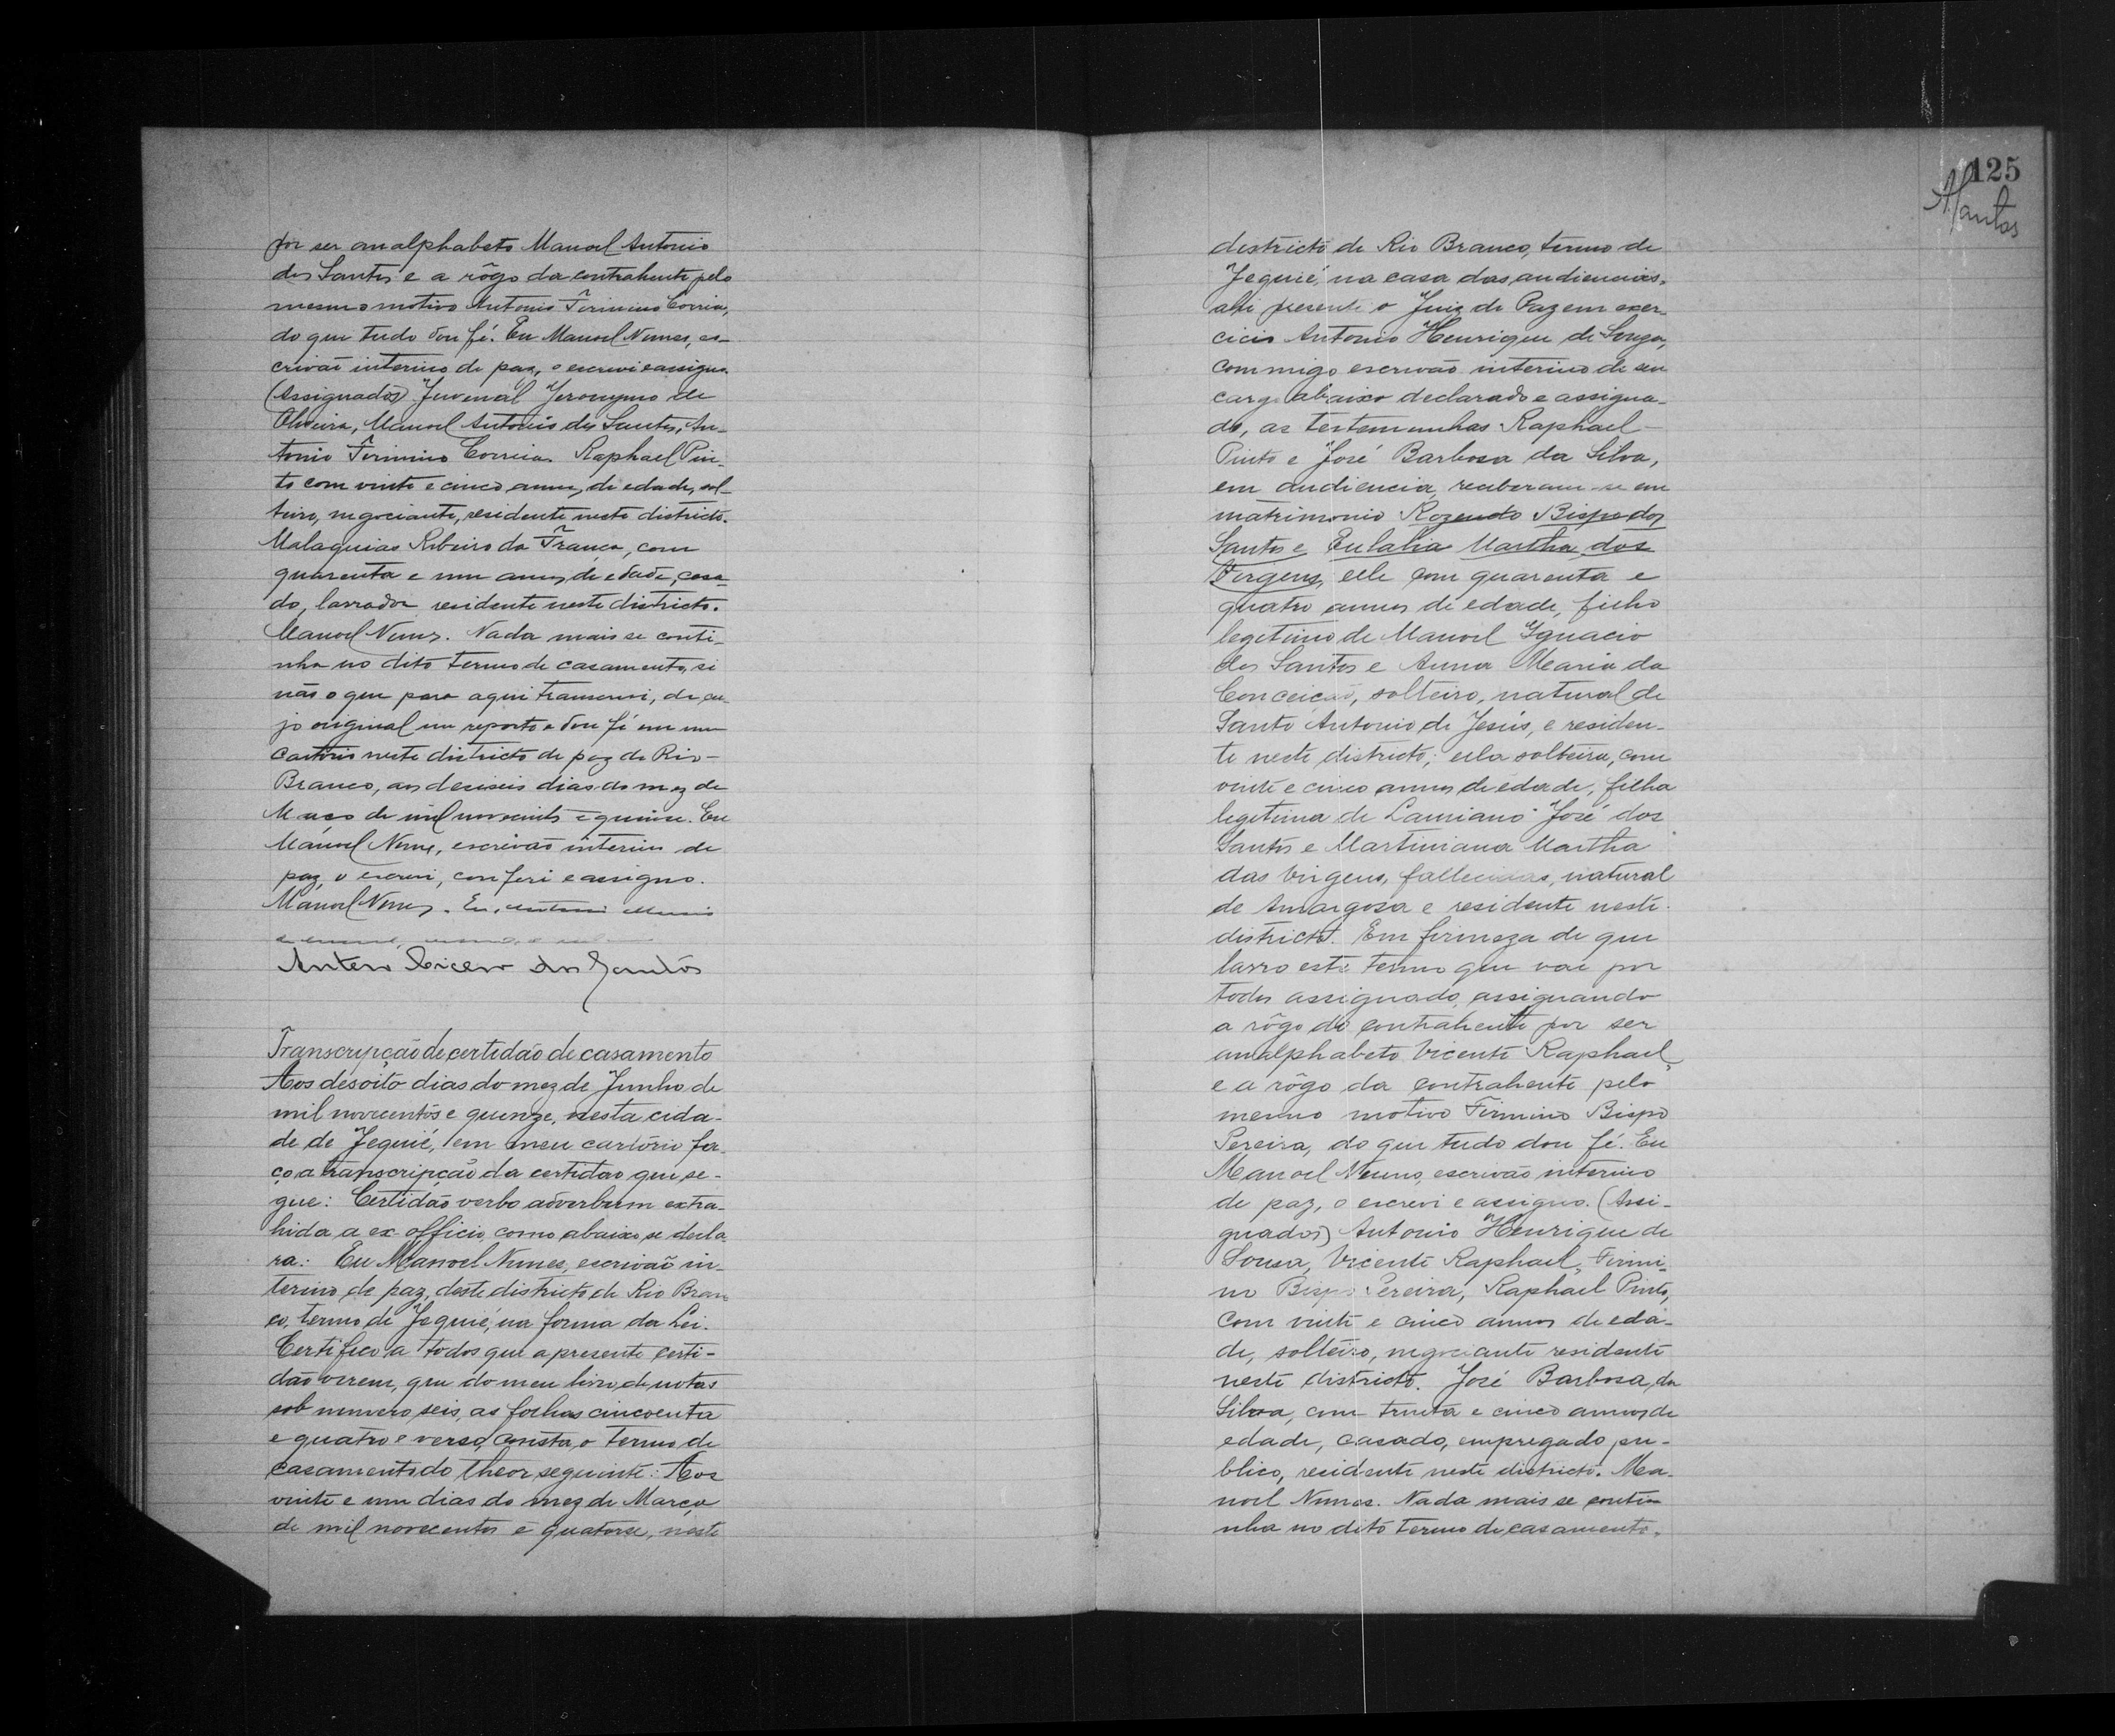 por ser analphabeto Manoel Antonio
dos Santos e a rôgo da contrahente pelo
mesmo motivo Antonio Firmino Correia,
do que tudo dou fé. Eu Manoel Nunes, es-
crivão interino de paz, o escrevi e assigno
(Assignados) Juvenal Jeronymo de
Oliveira, Manoel Antonio dos Santos, An-
tonio Firmino Correia. Raphael Pin-
to com vinte e cinco annos de edade, sol-
teiro, negociante, residente neste districto.
Malaquias Ribeiro da França, com
quarenta e um annos de edade, casa-
do, lavrador residente neste districto.
Manoel Nunes. Nada mais se conti-
nha no dito termo de casamento, si
não o que para aqui transcrevi, de cu-
jo original me reporto e dou fé em meu
cartorio neste districto de paz de Rio-
Branco, aos deciseis dias do mez de
de mil novecentos e quinze. Eu
Manoel Nunes, escrivão interino de
paz, o escrevi, conferi e assigno.
Manoel Nunes. Eu, Antonio
Antero Cicero dos Santos
Transcripção de certidão de casamento
Aos desoito dias do mez de Junho de
mil novecentos e quenze, nesta cida-
de de Jequié, em meu cartorio fa-
ço a transcripção da certidao que se-
gue: Certidão verbo adverbum extra-
hida a ex-officio, como abaixo se decla-
ra: Eu Manoel Nunes, escrivão in-
terino de paz, deste districto de Rio Bran
co, termo de Jequié, na forma da Lei.
Certifico a todos que a presente certi-
dão verem, que do meu livro de notas
sob numero seis, as folhas cincoenta
e quatro e verso, consta o termo de
casamento do theor seguinte: Aos
vinte e um dias do mez de Março
de mil novecentos e quatorse, neste
125
Santos
districto de Rio Branco, termo de
Jequié, na casa das audiencias,
ahi presente o Juiz de Paz em exer-
cicio Antonio Henrique de Souza,
commigo escrivão interino de seu
cargo abaixo declarado e assigna-
do, as testemunhas Raphael
Pinto e José Barbosa da Silva,
em audiencia, receberam-se em
matrimonio Rozendo Bispo dos
Santos e Eulalia Martha das
Virgens, elle com quarenta e
quatro annos de edade, filho
legetimo de Manoel Ignacio
dos Santos e Anna Maria da
Conceição, solteiro, natural de
Santo Antonio de Jesús, e residen-
te neste districto; ella solteira, com
vinte e cinco annos de edade, filha
legetima de Lauriano José dos
Santos e Martiniana Martha
das Virgens, fallecidas, natural
de Amargosa e residente neste
districto. Em firmeza de que
lavro este termo que vae por
todos assignado, assignando
a rôgo do contrahente por ser
analphabeto Vicente Raphael,
e a rôgo da contrahente pelo
mesmo motivo Firmino Bispo
Pereira, do que tudo dou fé. Eu
Manoel Nunes, escrivão interino
de paz, o escrevi e assigno. (Assi-
gnados) Antonio Henrique de
Sousa, Vicente Raphael, Firmi-
no Bispo Pereira, Raphael Pinto,
com vinte e cinco annos de eda-
de, solteiro, negociante residente
neste districto. José Barbosa da
Silva, com trinta e cinco annos de
edade, casado, empregado pu-
blico, residente neste districto. Ma-
noel Nunes. Nada mais se conti-
nha no dito termo de casamento,